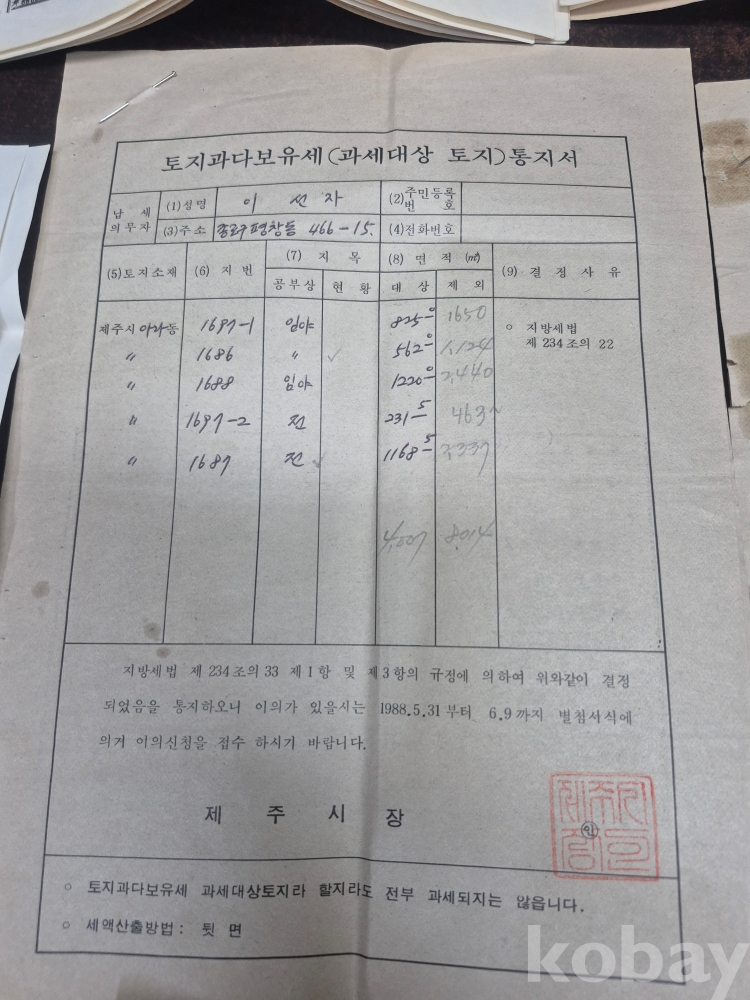 토지과다보유세(과세대상 토지)통지서
납 세 의무자
(1)성명 이 선 자 (2)주민등록 번 호
(3)주소 종로구 평창동 466-15. (4)전화번호
(5)토지소재 (6) 지 번 (7) 지 목 (8) 면 적 (㎡) (9) 결 정 사 유
공부상 현 황 대 상 제 외
제주시 아라동 1697-1 임야 825-0 1650 ○ 지방세법
제 234 조의 22
〃 1686 〃 ✓ 562-0 1,124
〃 1688 임야 1220-0 2,440
〃 1697-2 전 231-5 463
〃 1687 전 ✓ 1168-5 2,337
4,007 8014
지방세법 제 234 조의 33 제 1 항 및 제 3 항의 규정에 의하여 위와같이 결정
되었음을 통지하오니 이의가 있을시는 1988.5.31 부터 6.9 까지 별첨서식에
의거 이의신청을 접수 하시기 바랍니다.
제 주 시 장
인
○ 토지과다보유세 과세대상토지라 할지라도 전부 과세되지는 않읍니다.
○ 세액산출방법 : 뒷 면
kobay